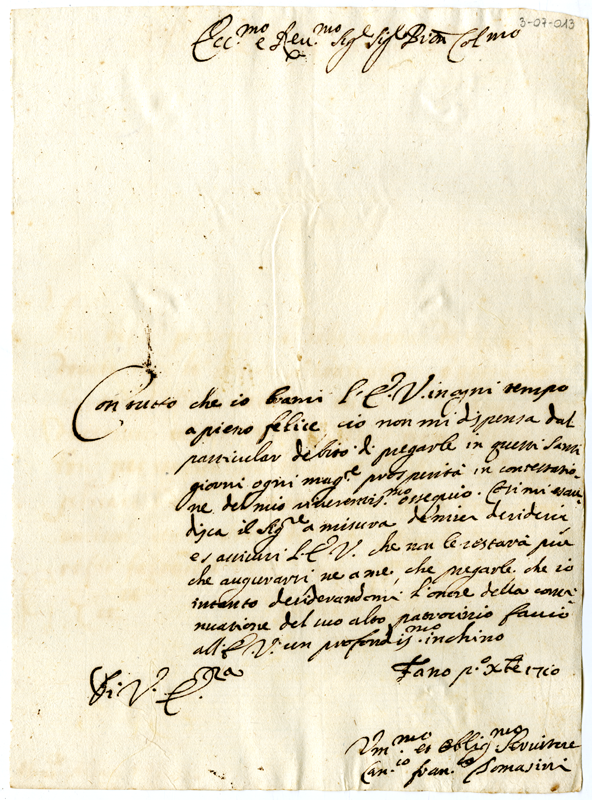 3-07-013
Ecc.mo e Reu.mo Sig.r Sig.r Pron Col.mo
Con tutto che io brami l'E. V. in ogni tempo
apieno felice, ciò non mi dispensa dal
particular debito di pregarle in questi Santi
giorni ogni mag.re prosperità in contestatio-
ne del mio riuerentis.mo ossequio. Così mi esau-
disca il Sig.re a misura de miei desiderii
e s'assicuri l'E. V. che non le restarà più
che augurarsi ne a me, che pregarle che io
intanto desiderandomi l'onore della conti-
nuatione del suo alto patrocinio faccio
all'E. V. un profondis.mo inchino
Fano p.o Xbre 1710
Di V. E.za
Vm.mo et Oblig.mo Seruitore
Can.co Fran.co Tomasini